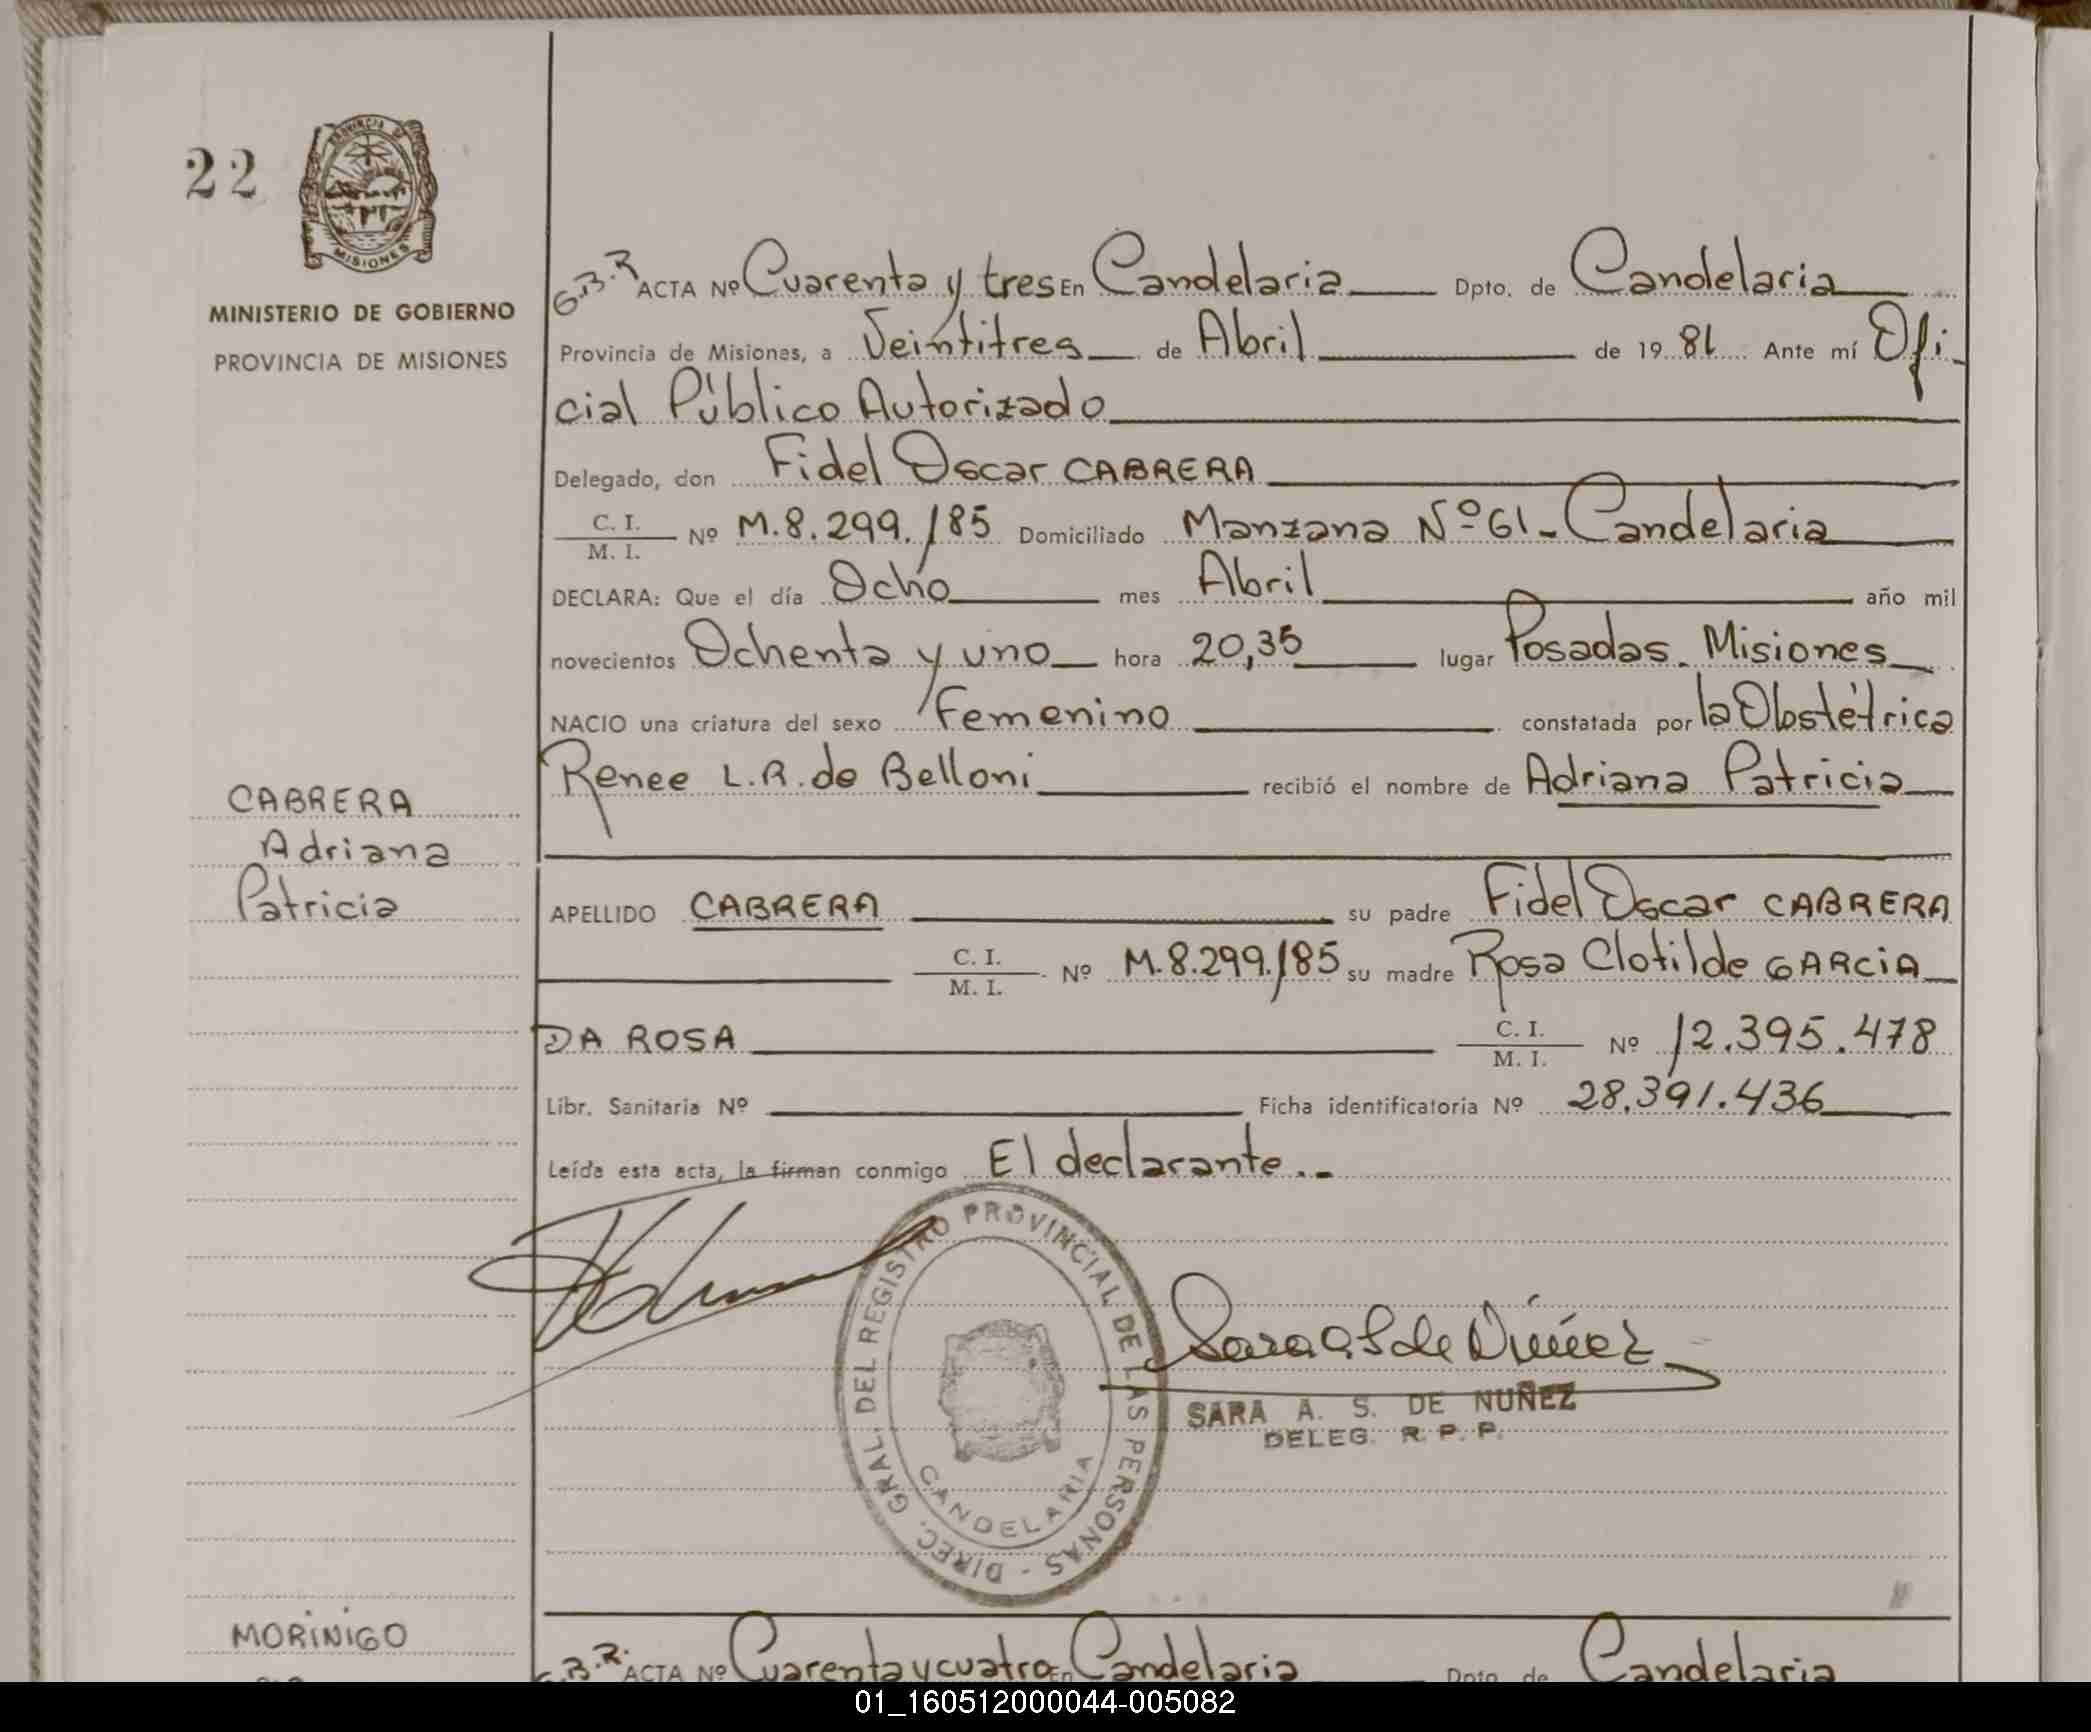 22
PROVINCIA DE
MISIONES
MINISTERIO DE GOBIERNO
PROVINCIA DE MISIONES
G.B.R ACTA Nº Cuarenta y tres En Candelaria Dpto. de Candelaria
Provincia de Misiones, a Veintitres de Abril de 19 81 Ante mí Ofi-
cial Público Autorizado
Delegado, don Fidel Oscar CABRERA
C. I.
M. I. Nº M.8.299.185 Domiciliado Manzana Nº 61 - Candelaria
DECLARA: Que el día Ocho mes Abril año mil
novecientos Ochenta y uno hora 20,35 lugar Posadas. Misiones
NACIO una criatura del sexo Femenino constatada por la Obstétrica
Renee L.R. de Belloni recibió el nombre de Adriana Patricia
CABRERA
Adriana
Patricia
APELLIDO CABRERA su padre Fidel Oscar CABRERA
C. I.
M. I. Nº M.8.299.185 su madre Rosa Clotilde GARCIA
DA ROSA C. I.
M. I. Nº 12.395.478
Libr. Sanitaria Nº Ficha identificatoria Nº 28.391.436
Leída esta acta, la firman conmigo El declarante.-
DIREC. GRAL. DEL REGISTRO PROVINCIAL DE LAS PERSONAS -
CANDELARIA
Sara A S de Núñez
SARA A. S. DE NUÑEZ
DELEG. R. P. P.
MORINIGO
G.B.R. ACTA Nº Cuarenta y cuatro En Candelaria Dpto. de Candelaria
01_160512000044-005082